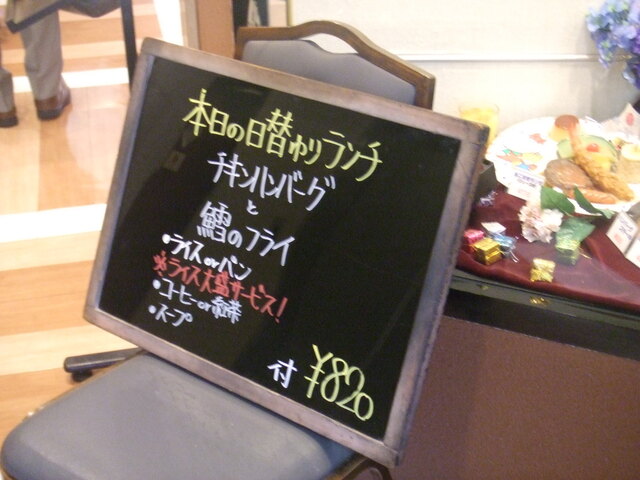 本日の日替わりランチ
チキンハンバーグ
と
鱈のフライ
•ライス or パン
※ライス大盛サービス!
•コーヒー or 紅茶
•スープ
付 ¥820